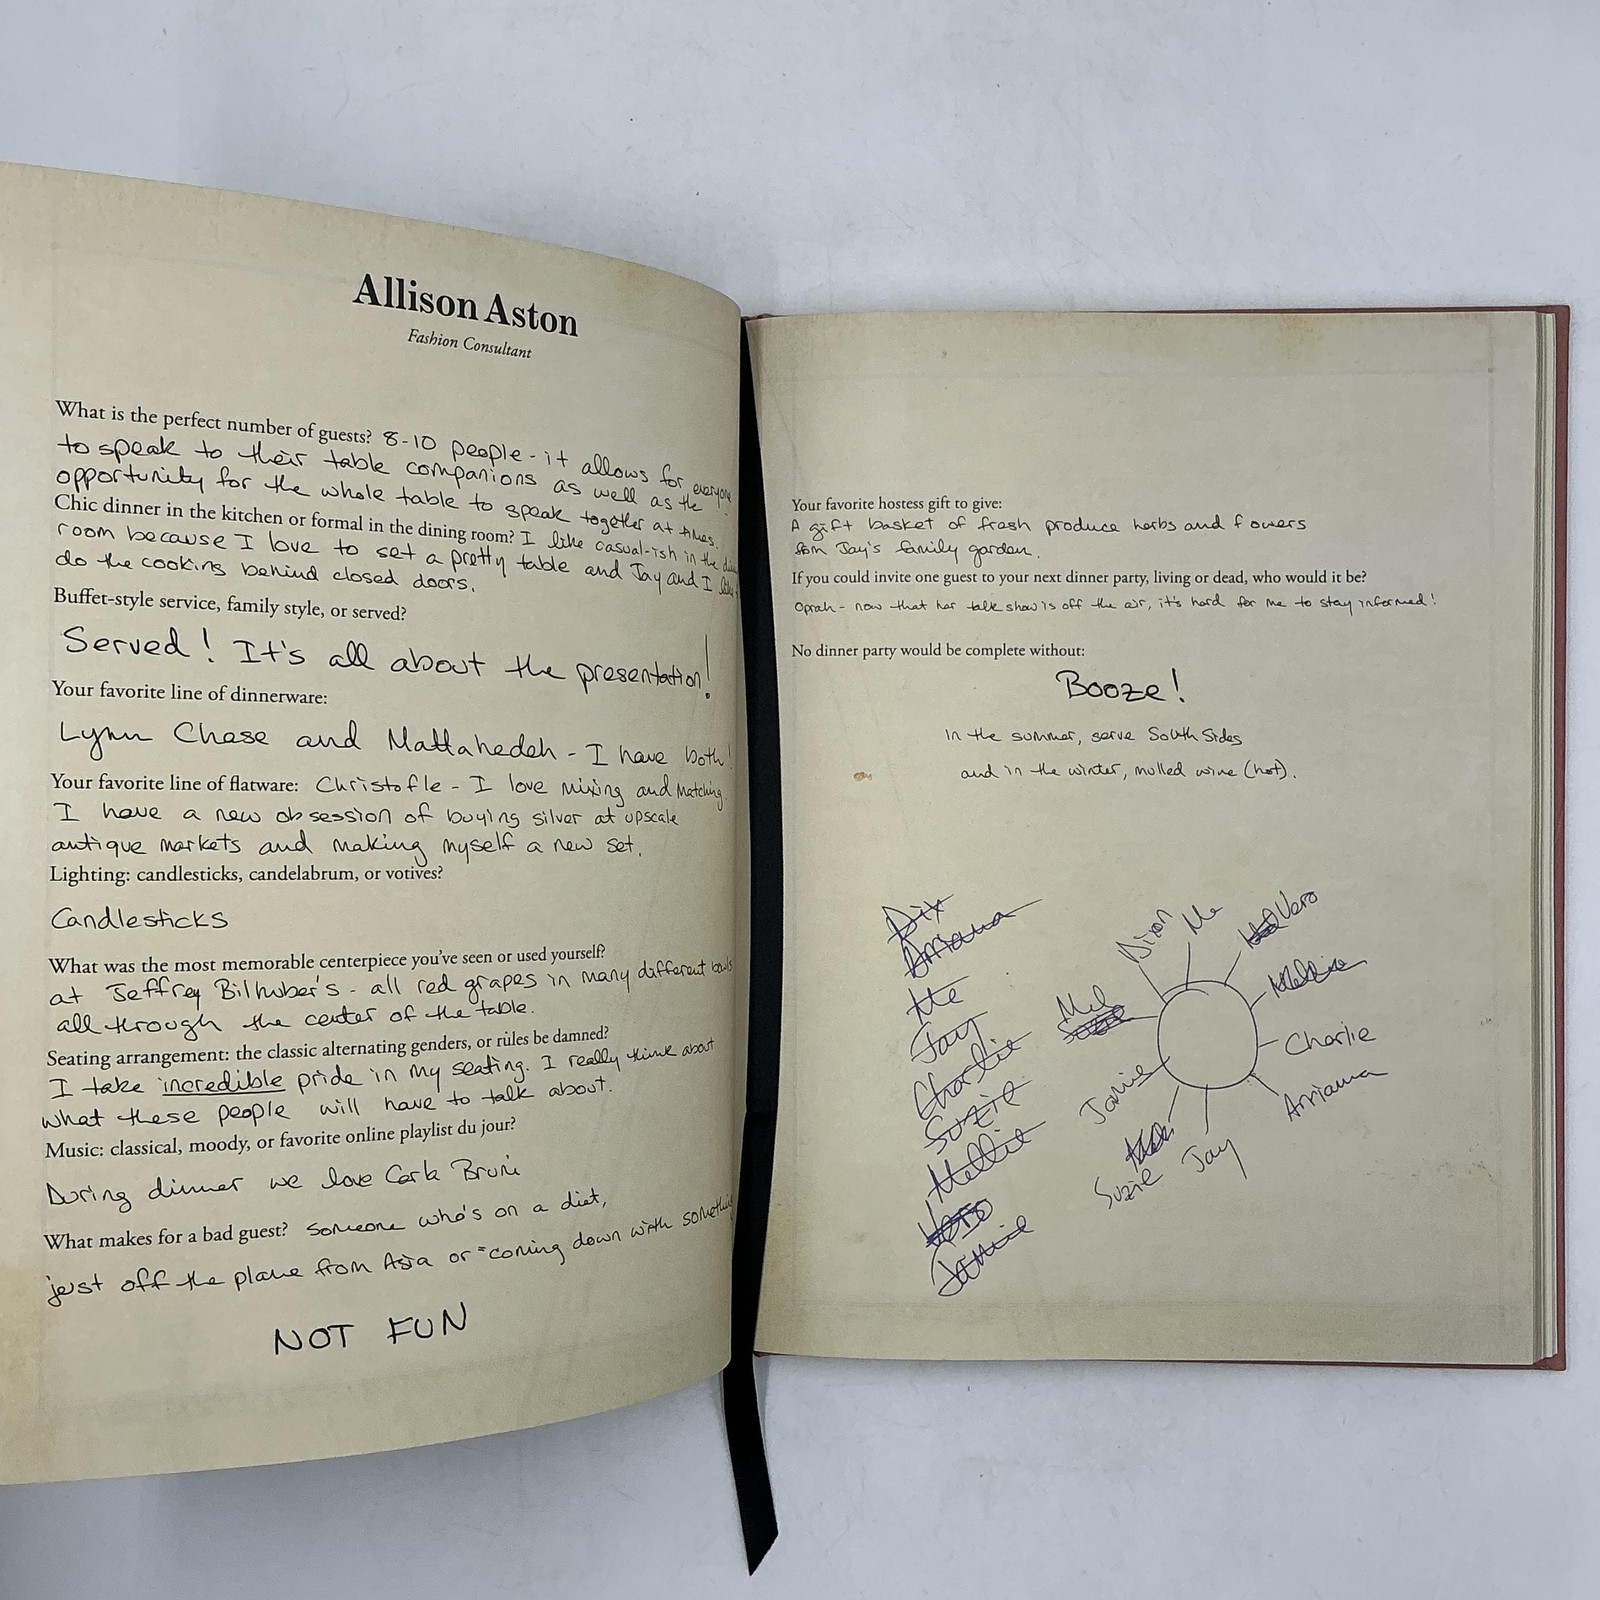 Allison Aston
Fashion Consultant
What is the perfect number of guests? 8-10 people - it allows for everyone
to speak to their table companions as well as the
opportunity for the whole table to speak together at times.
Chic dinner in the kitchen or formal in the dining room? I like casual-ish in the
room because I love to set a pretty table and Jay and I
do the cooking behind closed doors.
Buffet-style service, family style, or served?
Served! It's all about the presentation!
Your favorite line of dinnerware:
Lynn Chase and Mottahedeh - I have both!
Your favorite line of flatware: Christofle - I love mixing and matching.
I have a new obsession of buying silver at upscale
antique markets and making myself a new set.
Lighting: candlesticks, candelabrum, or votives?
Candlesticks
What was the most memorable centerpiece you've seen or used yourself?
at Jeffrey Bilhuber's - all red grapes in many different bowls
all through the center of the table.
Seating arrangement: the classic alternating genders, or rules be damned?
I take incredible pride in my seating. I really think about
what these people will have to talk about.
Music: classical, moody, or favorite online playlist du jour?
During dinner we love Carla Bruni
What makes for a bad guest? Someone who's on a diet,
just off the plane from Asia or "coming down with something
NOT FUN
Your favorite hostess gift to give:
A gift basket of fresh produce herbs and flowers
from Jay's family garden.
If you could invite one guest to your next dinner party, living or dead, who would it be?
Oprah - now that her talk show is off the air, it's hard for me to stay informed!
No dinner party would be complete without:
Booze!
In the summer, serve South Sides
and in the winter, mulled wine (hot).
Dix
Arriana
Me
Jay
Charlie
Suzie
Mellie
Vero
Jamie
Dixon
Me
Vero
Mellie
Charlie
Arriana
Jay
Suzie
Jamie
Mel
Suzie